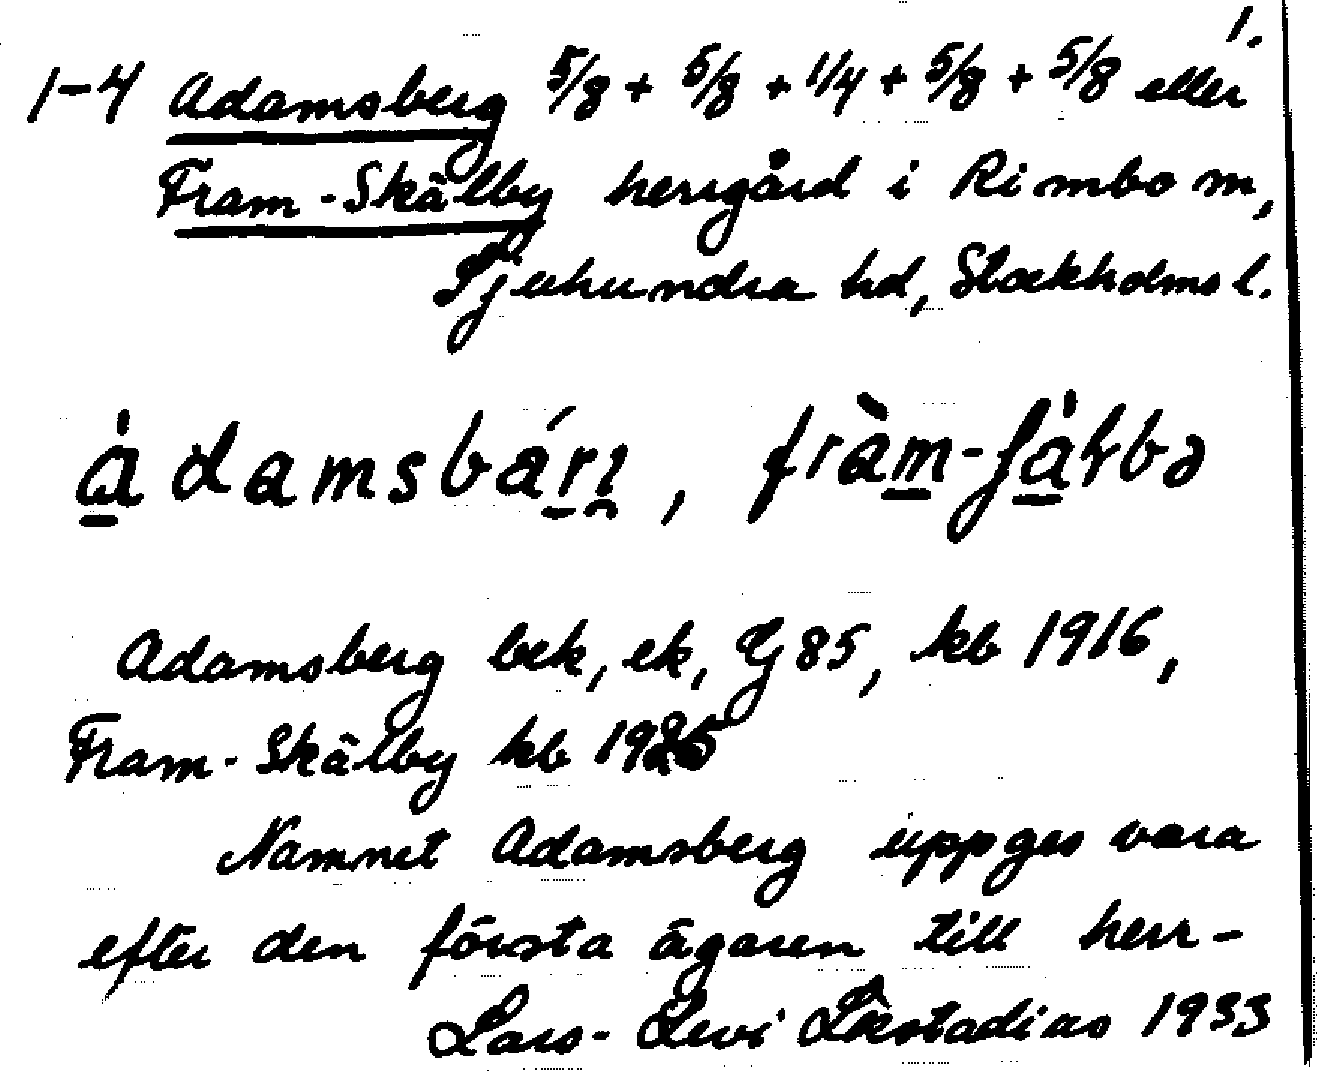 1.
1-4 Adamsberg 5/8 + 5/8 + 1/4 + 5/8 + 5/8 eller
Fram-Skälby herrgård i Rimbo sn,
Sjuhundra hd, Stockholms l.
àdamsbárj, fràm-ʃàlbə
Adamsberg bek, ek, GJ 85, kb 1916,
Fram-Skälby kb 1925
Namnet Adamsberg uppges vara
efter den första ägaren till herr-
Lars-Levi Læstadius 1933